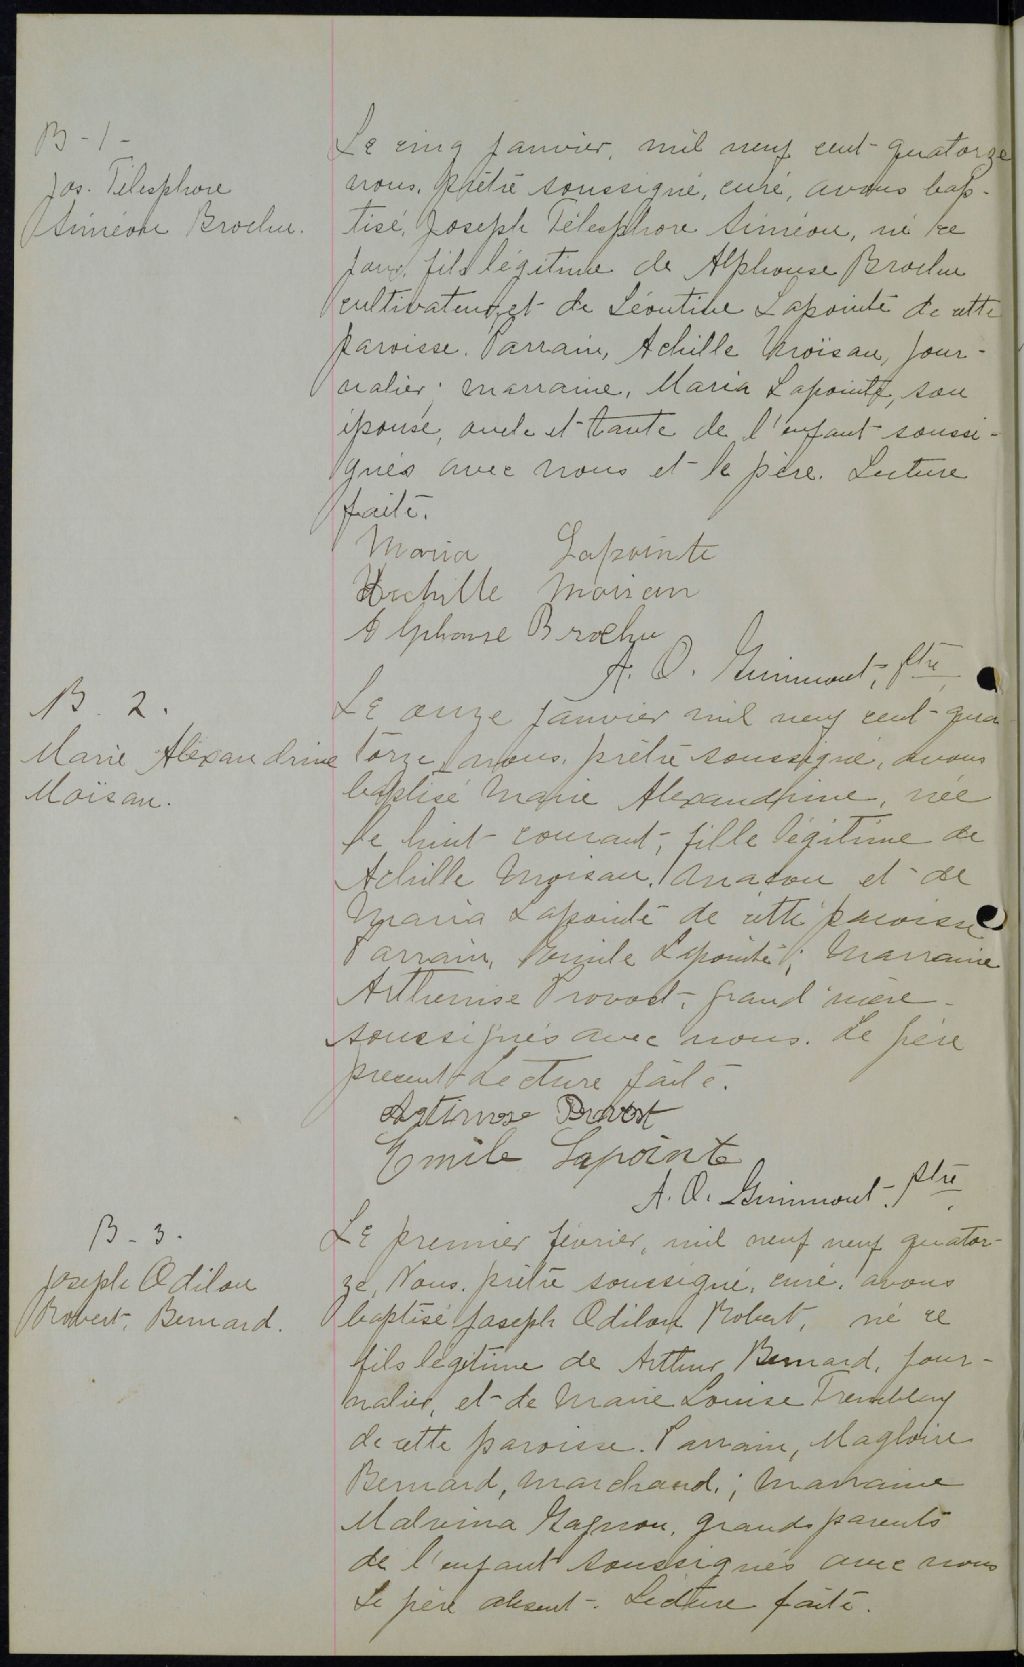 B - 1 -
Jos. Télesphore
Siméon Brochu.
Le cinq janvier, mil neuf cent quatorze
nous, prêtre soussigné, curé, avons bap-
tisé, Joseph Télesphore Siméon, né ce
jour, fils légitime de Alphonse Brochu
cultivateur, et de Léontine Lapointe de cette
paroisse. Parrain, Achille Moïsan, jour-
nalier; marraine, Maria Lapointe, son
épouse, oncle et tante de l'enfant soussi-
gnés avec nous et le père. Lecture
faite.
Maria Lapointe
Achille Moisan
Alphonse Brochu
A. O. Guimont, ptre
B. 2.
Marie Alexandrine
Moïsan.
Le onze janvier mil neuf cent qua-
torze, nous, prêtre soussigné, avons
baptisé Marie Alexandrine, née
le huit courant, fille légitime de
Achille Moisan, maçon et de
Maria Lapointe de cette paroisse
Parrain, Emile Lapointe; Marraine
Arthemise Provost, grand'mère -
soussignés avec nous. Le père
present Lecture faite.
Artimese Provost
Emile Lapointe
A. O. Guimont, ptre
B - 3.
Joseph Odilon
Robert, Bernard.
Le premier février, mil neuf neuf quator-
ze, Nous, prêtre soussigné, curé, avons
baptisé Joseph Odilon Robert, né ce
fils légitime de Arthur Bernard, jour-
nalier, et de Marie Louise Tremblay
de cette paroisse. Parrain, Magloire
Bernard, marchand,; Marraine
Malvina Gagnon, grands parents
de l'enfant soussignés avec nous
Le père absent. Lecture faite.